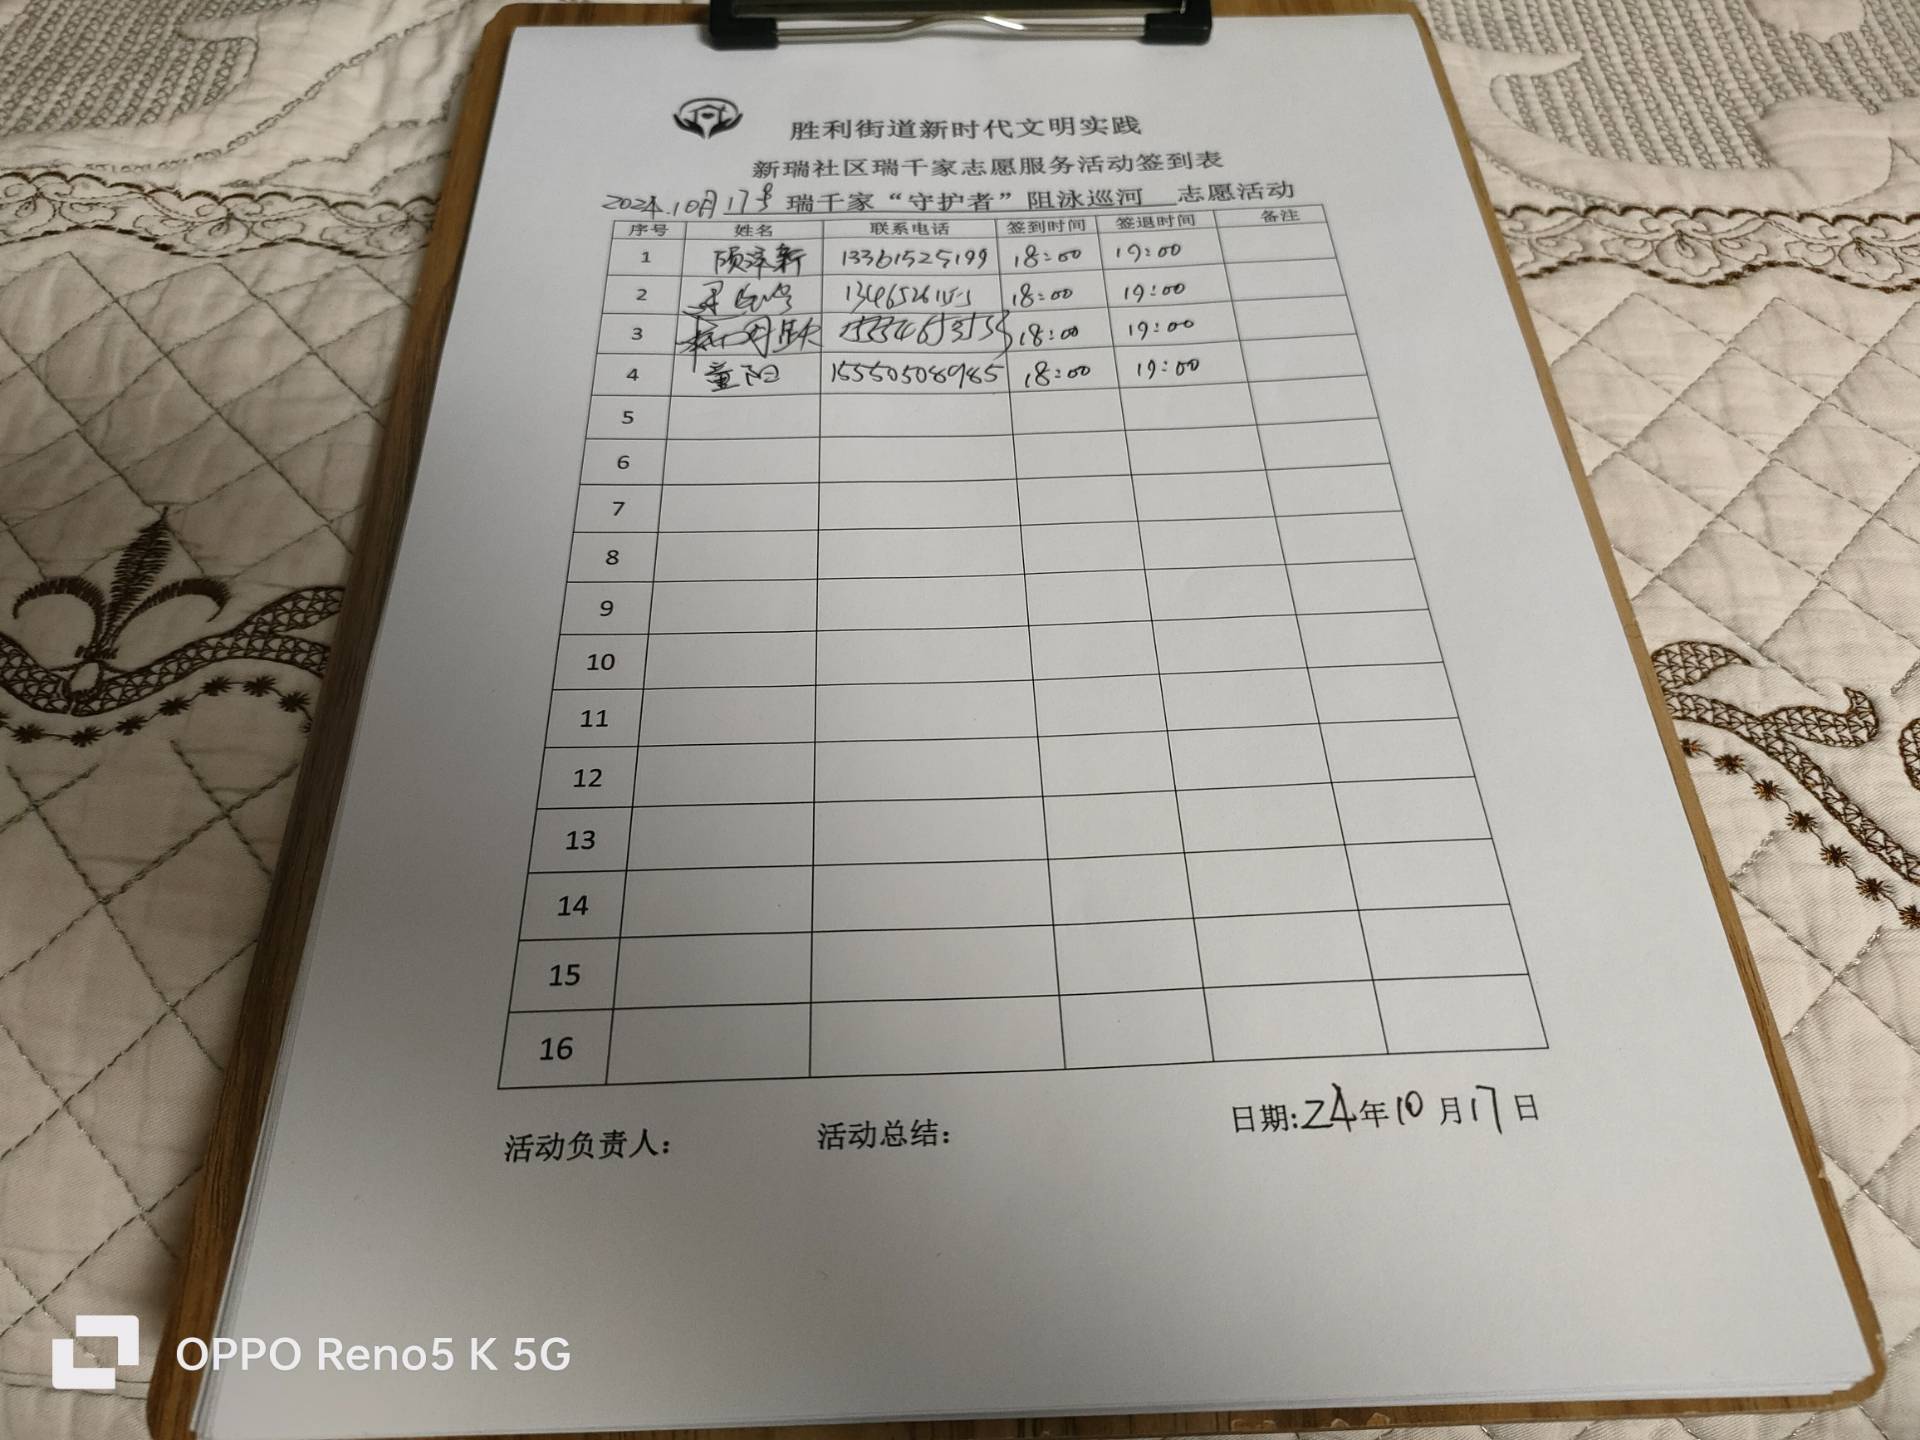 胜利街道新时代文明实践
新瑞社区瑞千家志愿服务活动签到表
2024.10月17号 瑞千家“守护者”阻泳巡河 志愿活动
序号 姓名 联系电话 签到时间 签退时间 备注
1 顾泽新 13361525199 18:00 19:00
2 18:00 19:00
3 18:00 19:00
4 董阳 15550508985 18:00 19:00
5
6
7
8
9
10
11
12
13
14
15
16
活动负责人： 活动总结： 日期:24年10月17日
OPPO Reno5 K 5G